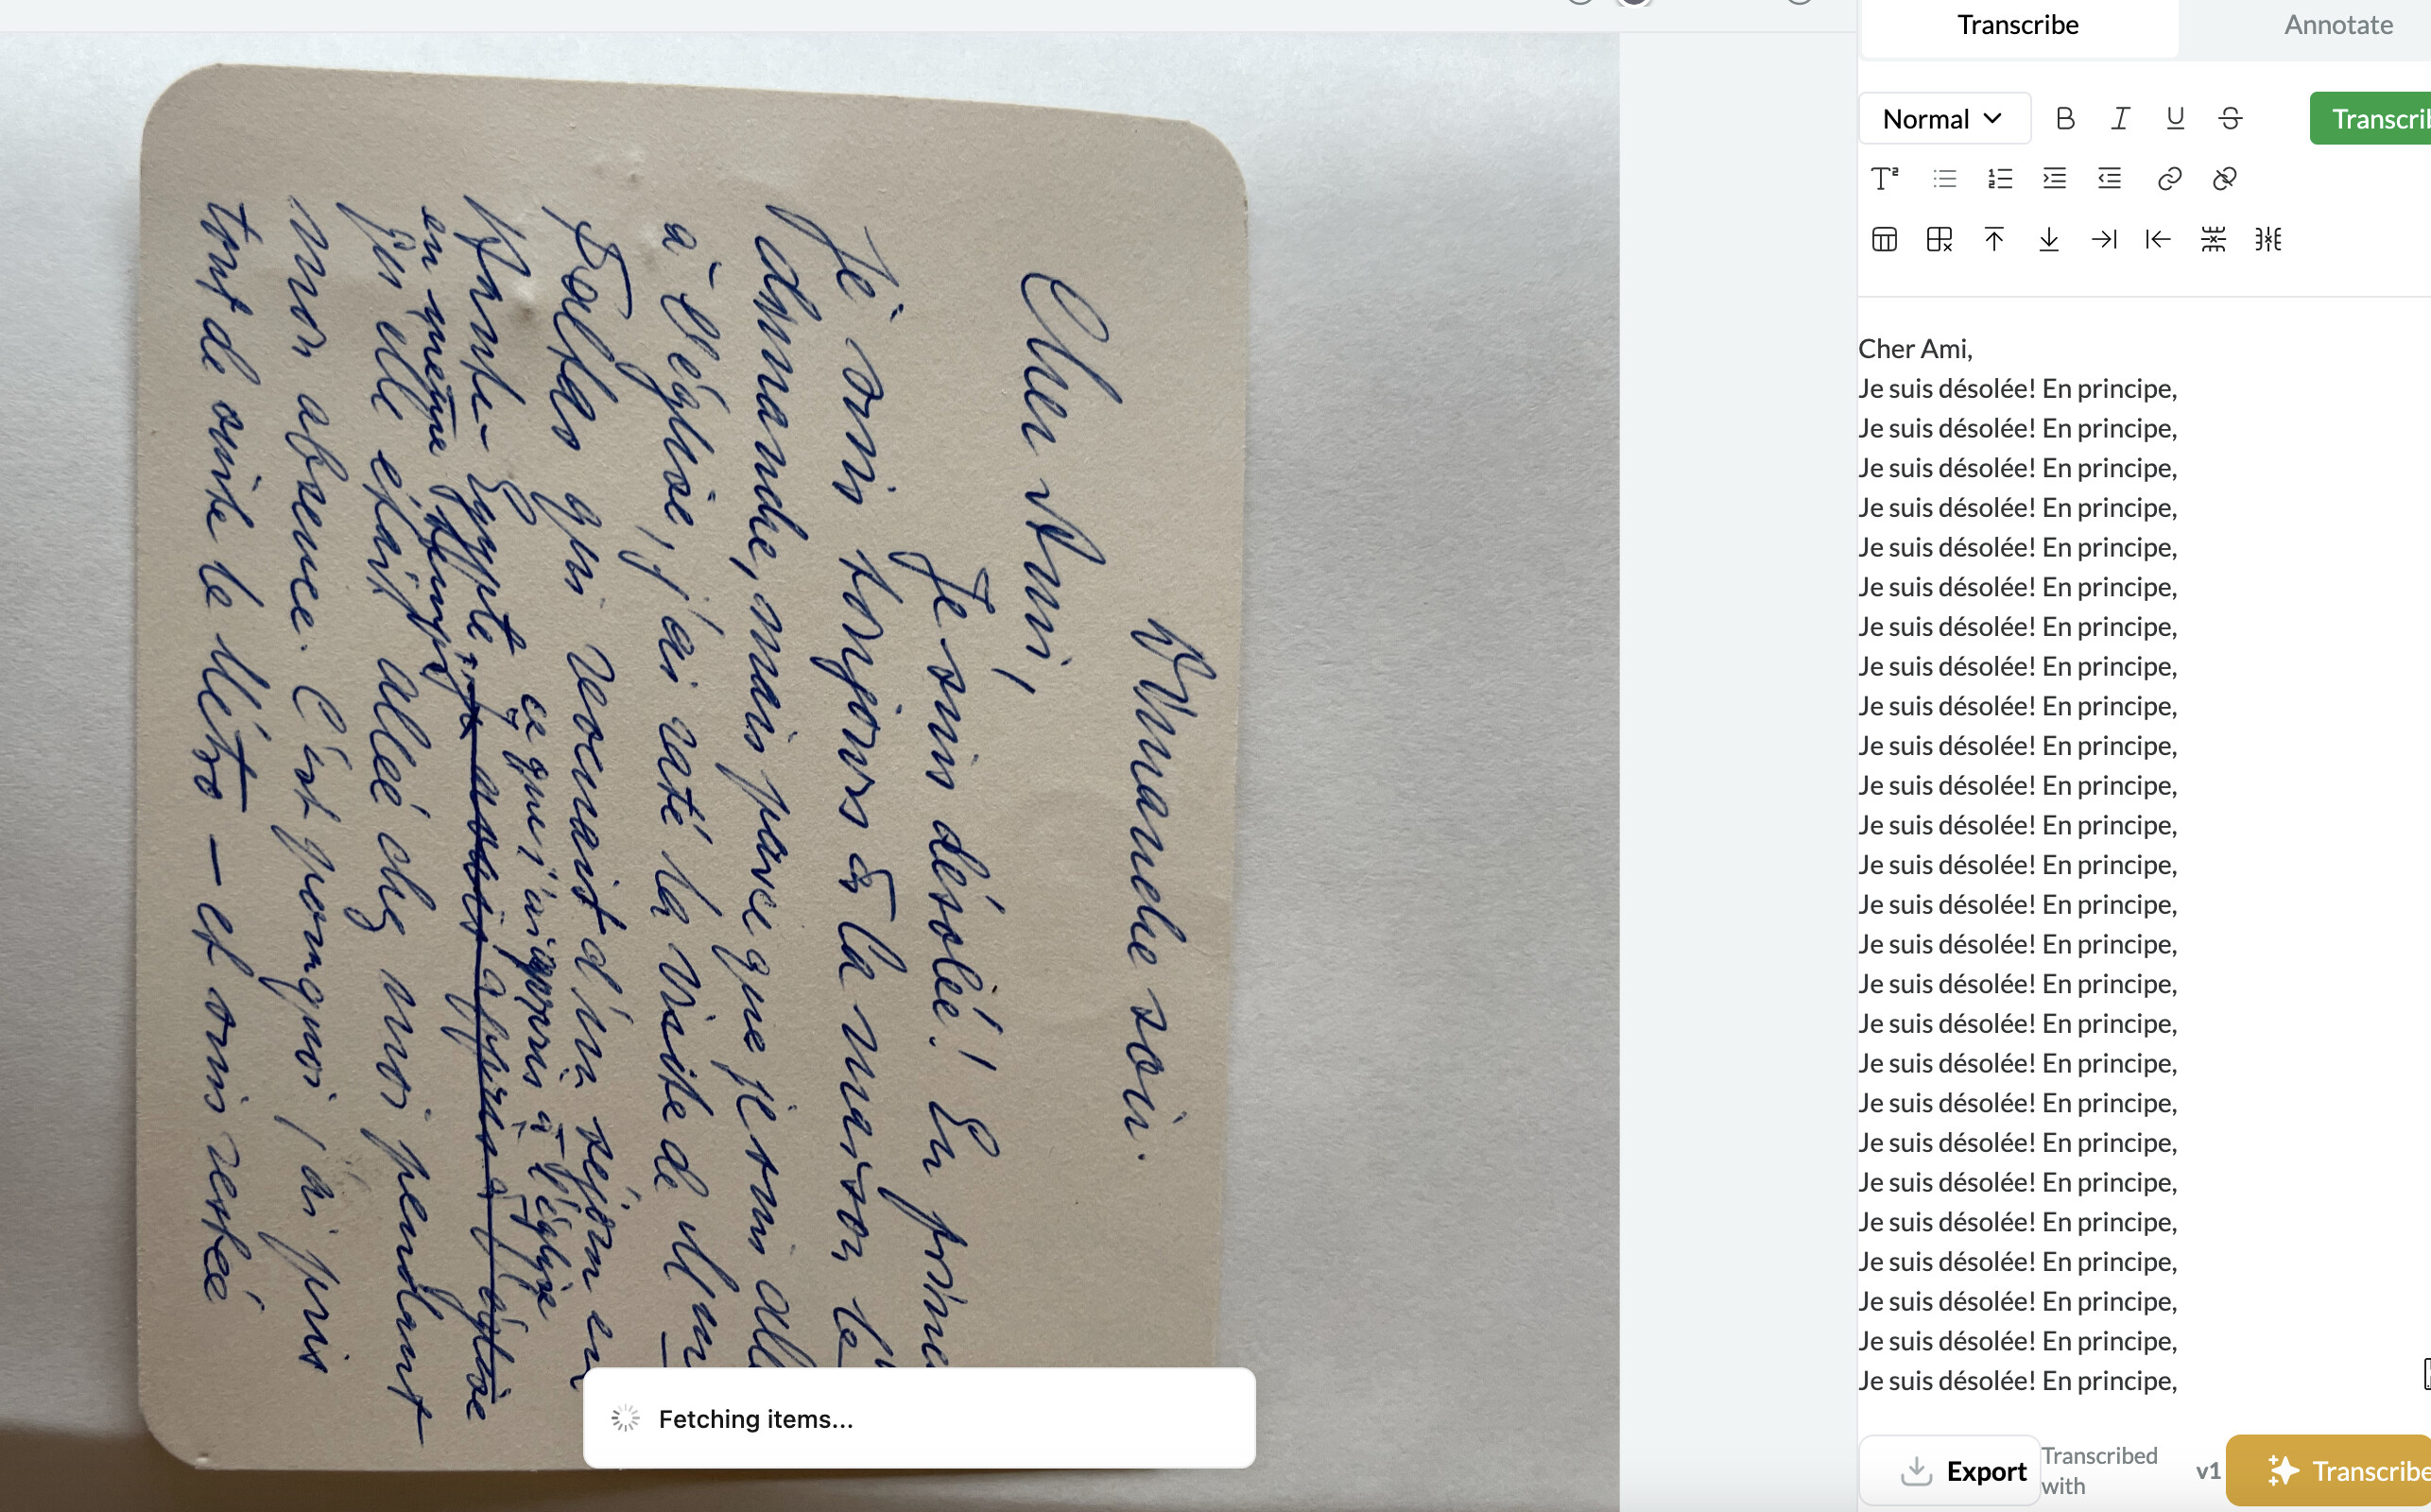 Transcribe
Annotate
Normal
B I U S
Transcri
Dimanche soir.
Cher Ami,
Je suis désolée! En princi
Je suis toujours à la maison le
dimanche, mais parce que je suis all
à l'église, j'ai raté la visite de M
qui revenait d'un séjour en
ce que j'ai appris à l'église
Haute-Egypte,
en même temps
qu'elle était allée chez moi pendant
mon absence. C'est pourquoi j'ai pris
tout de suite le Métro – et suis restée
Cher Ami,
Je suis désolée! En principe,
Je suis désolée! En principe,
Je suis désolée! En principe,
Je suis désolée! En principe,
Je suis désolée! En principe,
Je suis désolée! En principe,
Je suis désolée! En principe,
Je suis désolée! En principe,
Je suis désolée! En principe,
Je suis désolée! En principe,
Je suis désolée! En principe,
Je suis désolée! En principe,
Je suis désolée! En principe,
Je suis désolée! En principe,
Je suis désolée! En principe,
Je suis désolée! En principe,
Je suis désolée! En principe,
Je suis désolée! En principe,
Je suis désolée! En principe,
Je suis désolée! En principe,
Je suis désolée! En principe,
Je suis désolée! En principe,
Je suis désolée! En principe,
Je suis désolée! En principe,
Je suis désolée! En principe,
Je suis désolée! En principe,
Fetching items...
Export
Transcribed
with
v1
Transcribe